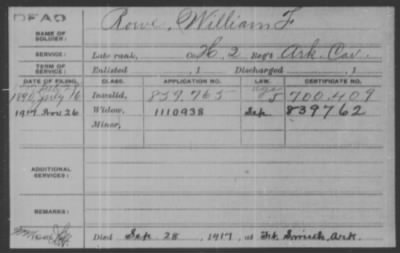 DEAD
NAME OF SOLDIER: Rowe, William F.
SERVICE: Late rank, Co. H, 2 Reg't Ark. Cav.
TERM OF SERVICE: Enlisted , 1 Discharged , 1
DATE OF FILING. CLASS. APPLICATION NO. LAW. CERTIFICATE NO.
1890 July 16 Invalid, 859.765 700.409
1917 Nov 26 Widow, 1110938 Sep. 839762
Minor,
ADDITIONAL SERVICES:
REMARKS:
Died Sep. 28, 1917, at Ft. Smith, Ark.